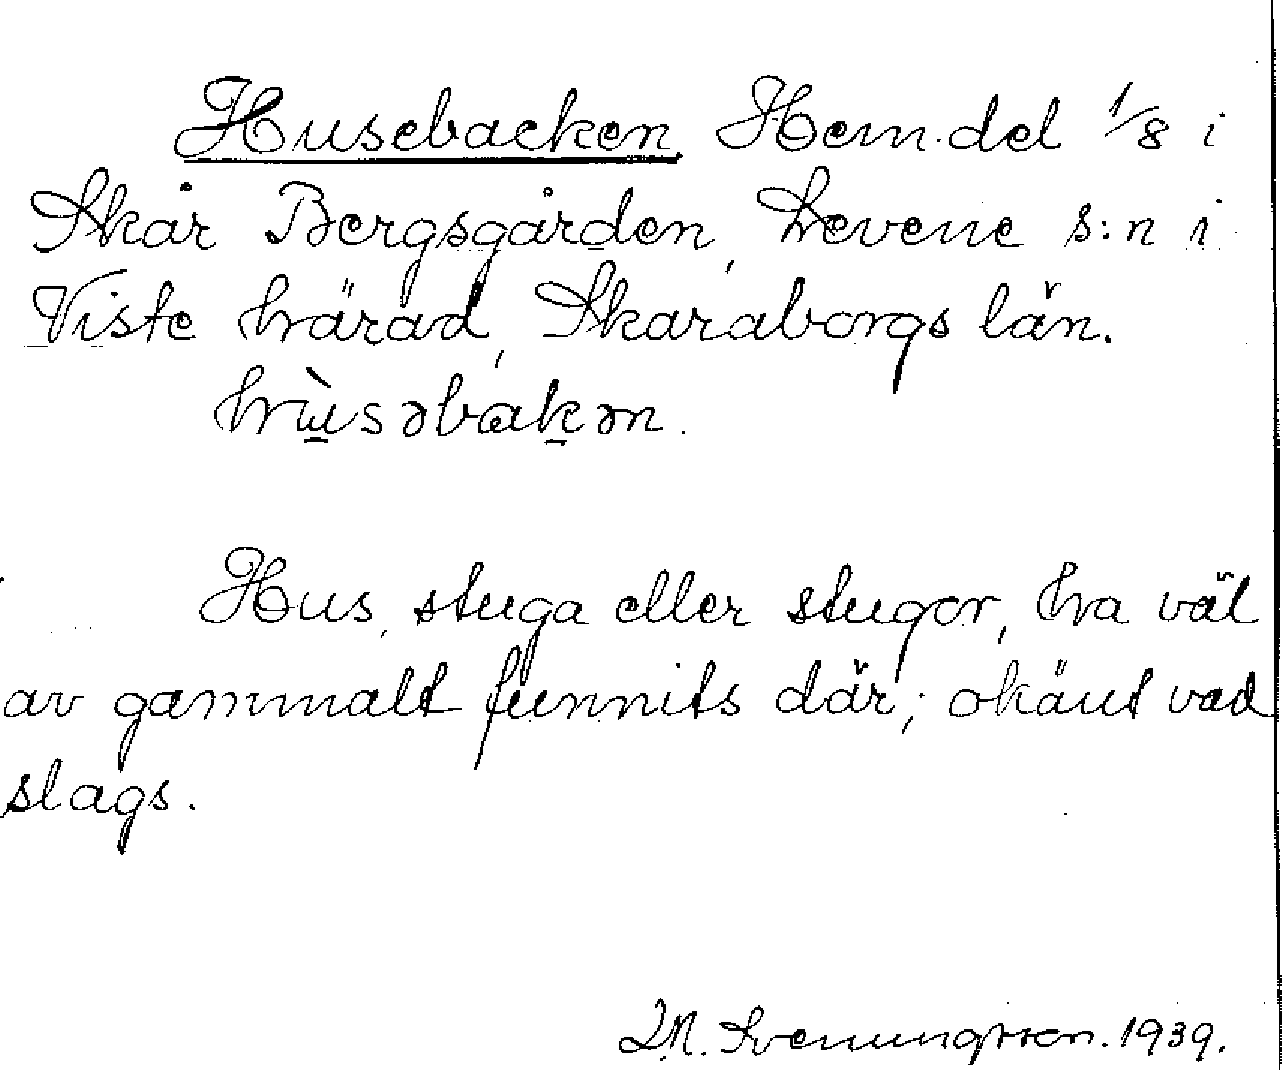 Husebacken. Hem.del 1/8 i
Skår Bergsgården, Levene s:n i
Viste härad, Skaraborgs län.
hùsəbakən.
Hus, stuga eller stugor, ha väl
av gammalt funnits där; okänt vad
slags.
Svenungsson. 1939.